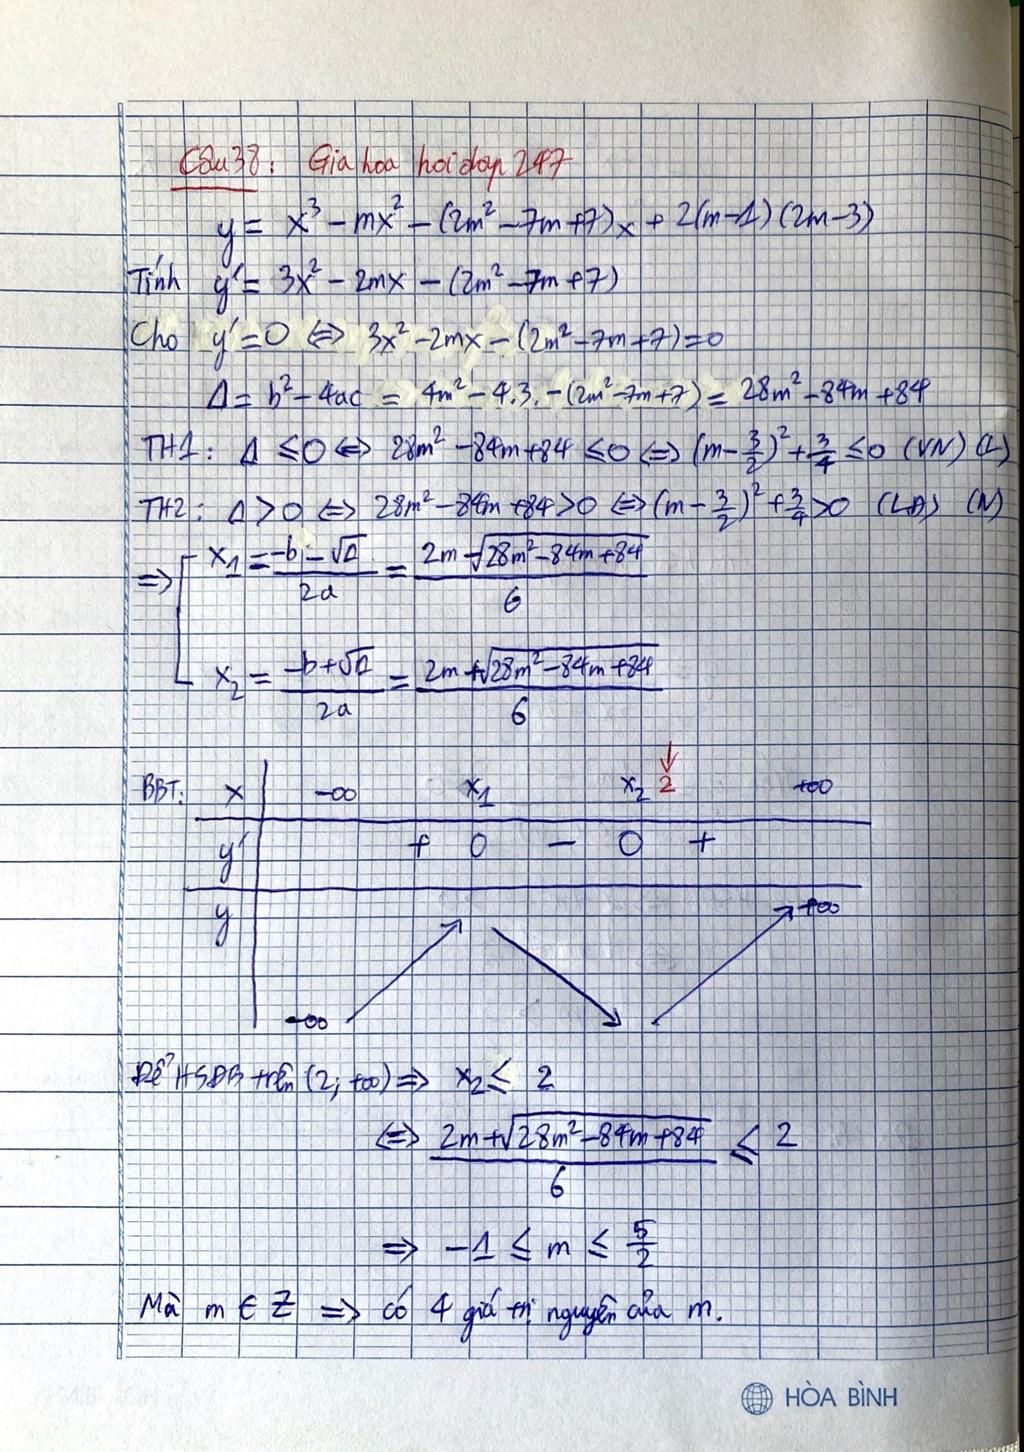 Câu 38: Gia hoa hoi dap 247
y = x³ - mx² - (2m² - 7m + 7)x + 2(m-1)(2m-3)
Tính y' = 3x² - 2mx - (2m² - 7m + 7)
Cho y' = 0 ⇔ 3x² - 2mx - (2m² - 7m + 7) = 0
Δ = b² - 4ac = 4m² - 4.3.-(2m² - 7m + 7) = 28m² - 84m + 84
TH1: Δ ≤ 0 ⇔ 28m² - 84m + 84 ≤ 0 ⇔ (m - 3/2)² + 3/4 ≤ 0 (VN) (L)
TH2: Δ > 0 ⇔ 28m² - 84m + 84 > 0 ⇔ (m - 3/2)² + 3/4 > 0 (LĐ) (N)
⇒ [ x₁ = (-b - √Δ)/2a = (2m - √(28m² - 84m + 84))/6
x₂ = (-b + √Δ)/2a = (2m + √(28m² - 84m + 84))/6
BBT: x -∞ x₁ x₂ 2 +∞
y' + 0 - 0 +
y +∞
-∞
Để HSĐB trên (2; +∞) ⇒ x₂ ≤ 2
⇔ (2m + √(28m² - 84m + 84))/6 ≤ 2
⇒ -1 ≤ m ≤ 5/2
Mà m ∈ Z ⇒ có 4 giá trị nguyên của m.
HÒA BÌNH